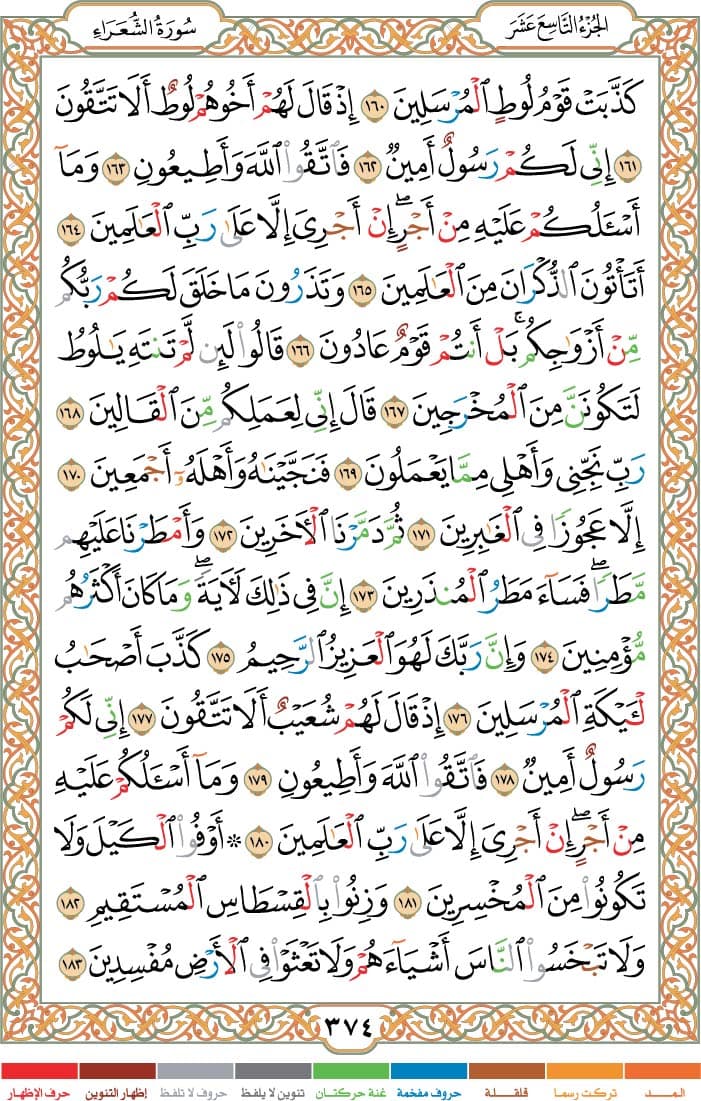 الجزء التاسع عشر
سورة الشعراء
كَذَّبَتْ قَوْمُ لُوطٍ ٱلْمُرْسَلِينَ ١٦٠ إِذْ قَالَ لَهُمْ أَخُوهُمْ لُوطٌ أَلَا تَتَّقُونَ
١٦١ إِنِّى لَكُمْ رَسُولٌ أَمِينٌ ١٦٢ فَٱتَّقُوا۟ ٱللَّهَ وَأَطِيعُونِ ١٦٣ وَمَآ
أَسْـَٔلُكُمْ عَلَيْهِ مِنْ أَجْرٍ ۖ إِنْ أَجْرِىَ إِلَّا عَلَىٰ رَبِّ ٱلْعَـٰلَمِينَ ١٦٤
أَتَأْتُونَ ٱلذُّكْرَانَ مِنَ ٱلْعَـٰلَمِينَ ١٦٥ وَتَذَرُونَ مَا خَلَقَ لَكُمْ رَبُّكُم
مِّنْ أَزْوَٰجِكُم ۚ بَلْ أَنتُمْ قَوْمٌ عَادُونَ ١٦٦ قَالُوا۟ لَئِن لَّمْ تَنتَهِ يَـٰلُوطُ
لَتَكُونَنَّ مِنَ ٱلْمُخْرَجِينَ ١٦٧ قَالَ إِنِّى لِعَمَلِكُم مِّنَ ٱلْقَالِينَ ١٦٨
رَبِّ نَجِّنِى وَأَهْلِى مِمَّا يَعْمَلُونَ ١٦٩ فَنَجَّيْنَـٰهُ وَأَهْلَهُۥٓ أَجْمَعِينَ ١٧٠
إِلَّا عَجُوزًا فِى ٱلْغَـٰبِرِينَ ١٧١ ثُمَّ دَمَّرْنَا ٱلْـَٔاخَرِينَ ١٧٢ وَأَمْطَرْنَا عَلَيْهِم
مَّطَرًا ۖ فَسَآءَ مَطَرُ ٱلْمُنذَرِينَ ١٧٣ إِنَّ فِى ذَٰلِكَ لَـَٔايَةً ۖ وَمَا كَانَ أَكْثَرُهُم
مُّؤْمِنِينَ ١٧٤ وَإِنَّ رَبَّكَ لَهُوَ ٱلْعَزِيزُ ٱلرَّحِيمُ ١٧٥ كَذَّبَ أَصْحَـٰبُ
لْـَٔيْكَةِ ٱلْمُرْسَلِينَ ١٧٦ إِذْ قَالَ لَهُمْ شُعَيْبٌ أَلَا تَتَّقُونَ ١٧٧ إِنِّى لَكُمْ
رَسُولٌ أَمِينٌ ١٧٨ فَٱتَّقُوا۟ ٱللَّهَ وَأَطِيعُونِ ١٧٩ وَمَآ أَسْـَٔلُكُمْ عَلَيْهِ
مِنْ أَجْرٍ ۖ إِنْ أَجْرِىَ إِلَّا عَلَىٰ رَبِّ ٱلْعَـٰلَمِينَ ١٨٠ * أَوْفُوا۟ ٱلْكَيْلَ وَلَا
تَكُونُوا۟ مِنَ ٱلْمُخْسِرِينَ ١٨١ وَزِنُوا۟ بِٱلْقِسْطَاسِ ٱلْمُسْتَقِيمِ ١٨٢
وَلَا تَبْخَسُوا۟ ٱلنَّاسَ أَشْيَآءَهُمْ وَلَا تَعْثَوْا۟ فِى ٱلْأَرْضِ مُفْسِدِينَ ١٨٣
٣٧٤
المــد تركت رسما قلقـلة حروف مفخمة غنة حركتان تنوين لا يلفظ حروف لا تلفظ إظهار التنوين حرف الإظهار